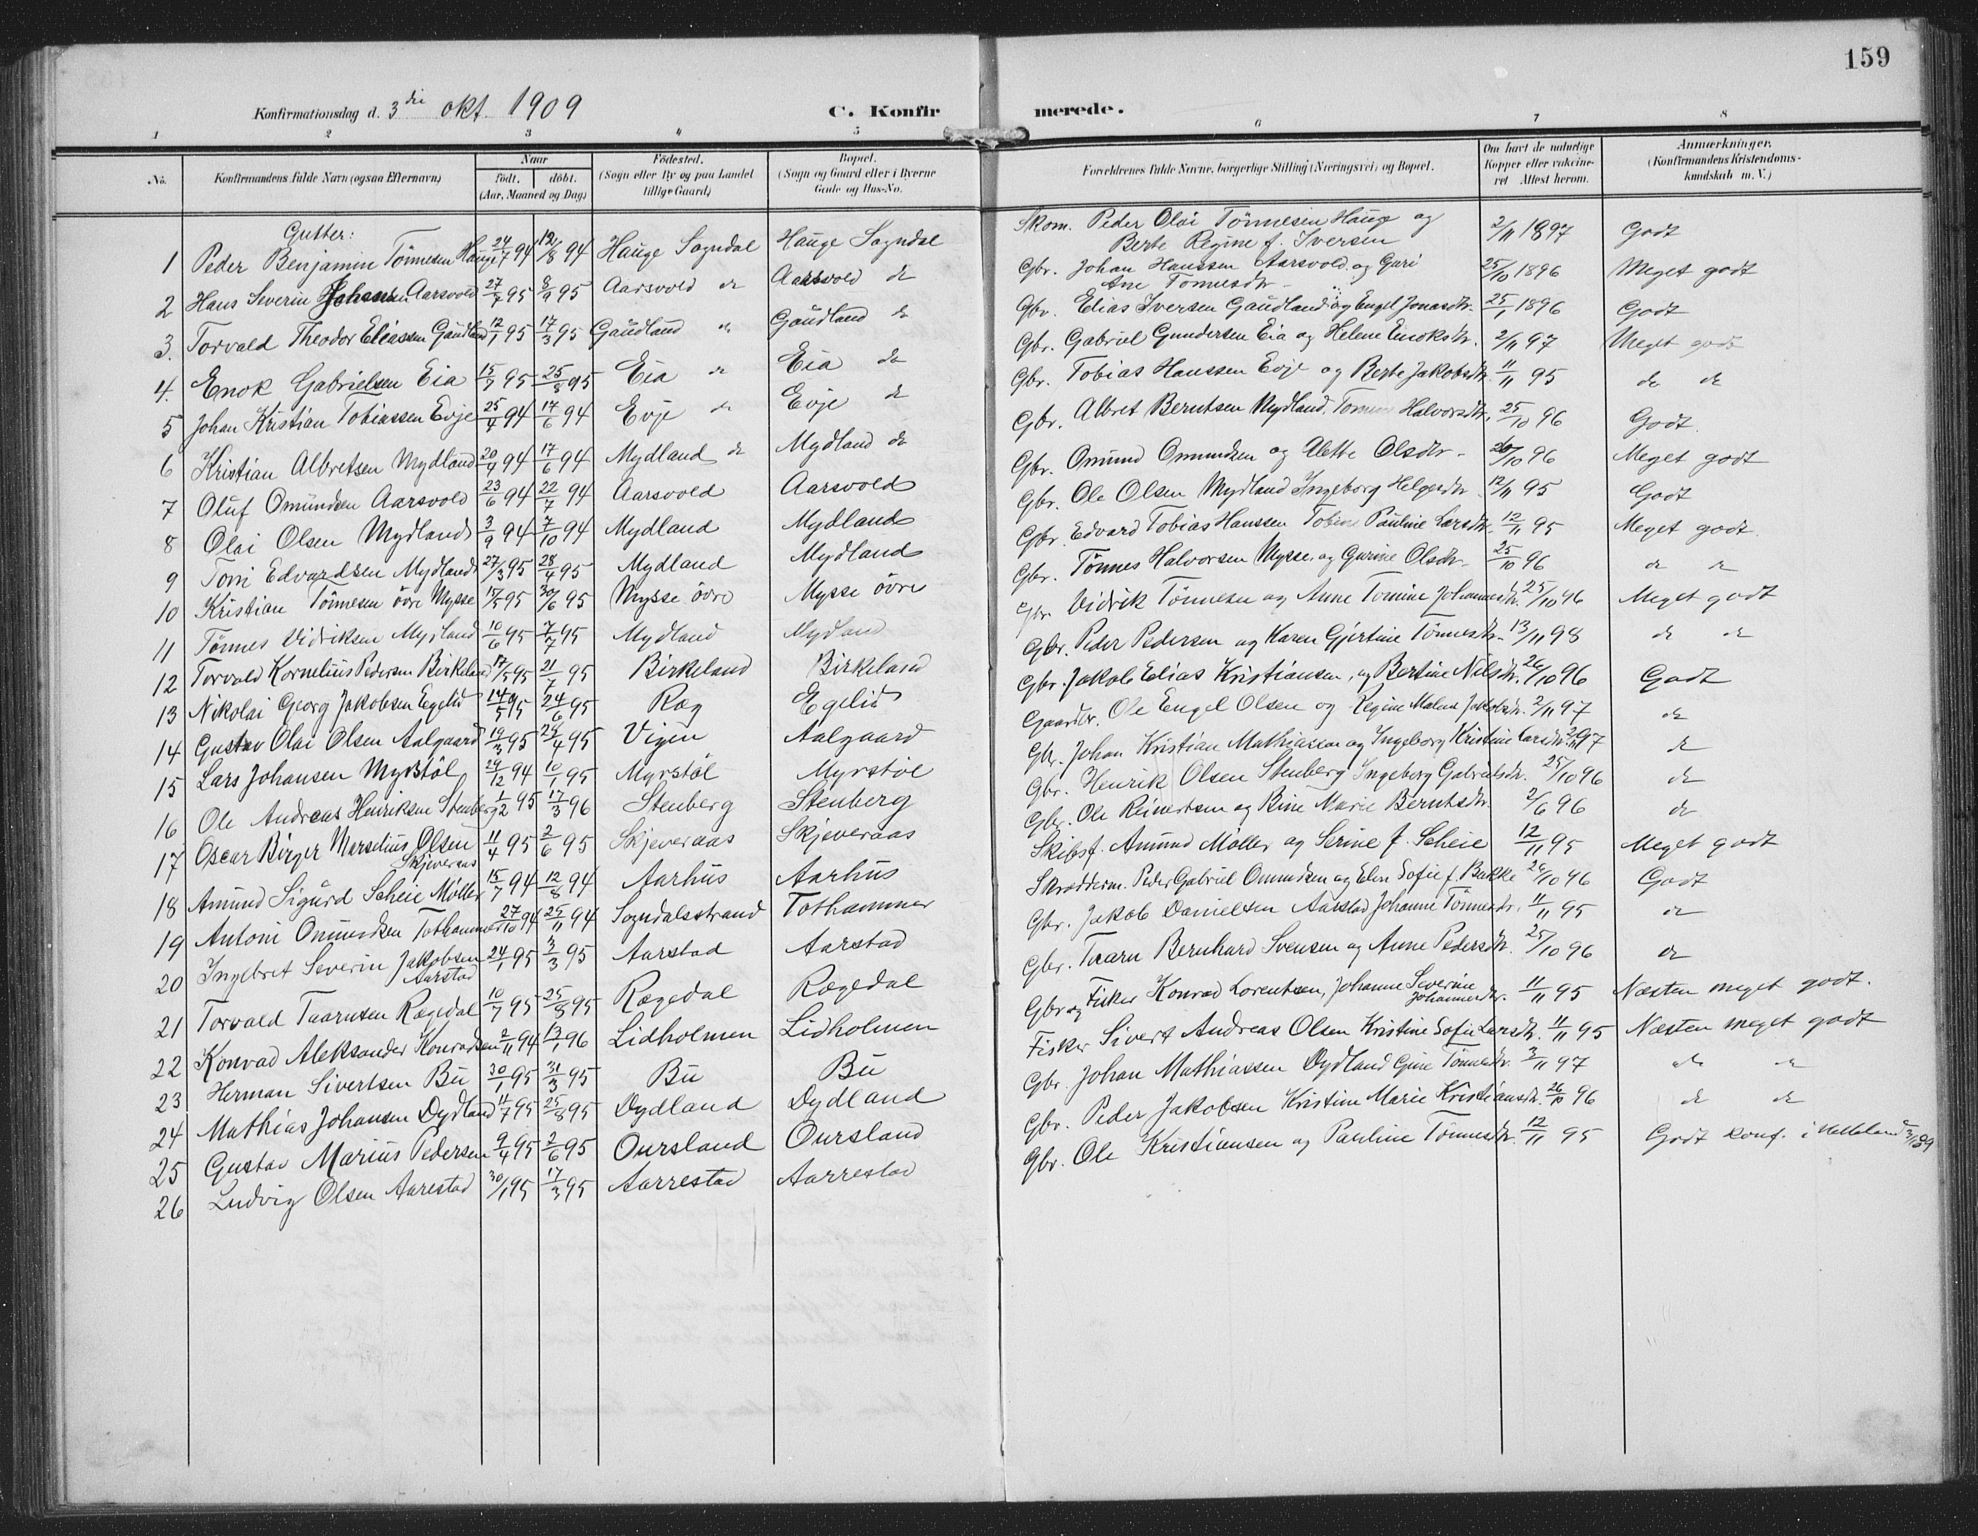 159
Konfirmationsdag d. 3die okt. 1909 C. Konfirmerede.
1 2 3 4 5 6 7 8
No. Konfirmandens fulde Navn (ogsaa Efternavn) Naar født. døbt. (Aar, Maaned og Dag) Fødested. (Sogn eller By og paa Landet tillige Gaard) Bopæl. (Sogn og Gaard eller i Byerne Gade og Hus-No. Forældrenes fulde Navne, borgerlige Stilling (Næringsvei) og Bopæl. Om havt de naturlige Kopper eller vakcineret Attest herom. Anmærkninger. (Konfirmandens Kristendomskundskab m. V.)
Gutter:
1 Peder Benjamin Tönnesen Hauge 24/7 94 12/8 94 Hauge Sogndal Hauge Sogndal Skom. Peder Olai Tönnesen Hauge og Berte Regine f. Iversen 2/11 1897 Godt
2 Hans Severin Johansen Aarsvold 27/7 95 8/9 95 Aarsvold do Aarsvold do Gbr. Johan Hanssen Aarsvold og Guri Ane Tönnesdtr. 25/10 1896 Meget godt
3. Torvald Theodor Eliassen Gaudland 12/1 95 17/3 95 Gaudland do Gaudland do Gbr. Elias Iversen Gaudland og Engel Jonasdtr. 25/1 1896 Godt
4. Enok Gabrielsen Eia 15/7 95 25/8 95 Eia do Eia do Gbr. Gabriel Gundersen Eia og Helene Enoksdtr. 2/11 97 Meget godt
5 Johan Kristian Tobiassen Evje 25/4 94 17/6 94 Evje do Evje do Gbr. Tobias Hanssen Evje og Berte Jakobsdtr. 11/11 95 do do
6 Kristian Albretsen Mydland 20/4 94 17/6 94 Mydland do Mydland do Gbr. Albret Berntsen Mydland, Halvorsdtr. 25/10 96 Godt.
7 Oluf Omundsen Aarsvold 23/6 94 22/7 94 Aarsvold Aarsvold Gbr. Omund Omundsen og Alette Olsdtr. 26/10 96 Meget godt
8 Olai Olsen Mydland 3/9 94 7/10 94 Mydland Mydland Gbr. Ole Olsen Mydland Ingeborg Helgesdtr. 12/11 95 Godt
9 Toni Edvardsen Mydland 27/3 95 28/4 95 Mydland Mydland Gbr. Edvard Tobias Hanssen Pauline Larsdtr. 12/11 95 Meget godt.
10 Kristian Tönnesen övre Mysse 15/5 95 30/6 95 Mysse övre Mysse övre Gbr. Tönnes Halvorsen Mysse og Gurine Olsdtr. 25/10 96 do do
11 Tönnes Vidriksen Mydland 10/6 95 7/7 95 Mydland Mydland Gbr. Vidrik Tönnesen og Anne Tomine Johannesdtr. 25/10 96 Meget godt
12 Torvald Kornelius Pedersen Birkeland 17/5 95 21/7 95 Birkeland Birkeland Gbr. Peder Pedersen og Karen Gjertine Tönnesdtr. 13/11 98 do do
13 Nikolai Georg Jakobsen Egelid 14/5 95 24/6 95 Ræg Egelid Gbr. Jakob Elias Kristiansen, og Bertine Nilsdtr. 26/10 96 Godt
14 Gustav Olai Olsen Aalgaard 19/3 95 28/4 95 Vigen Aalgaard Gaardbr. Ole Engel Olsen og Regine Malene Jakobsdtr. 2/11 97 do
15 Lars Johansen Myrstöl 29/12 94 10/1 95 Myrstöl Myrstöl Gbr. Johan Kristian Mathiassen og Ingeborg Kristine Larsdtr. 2/11 97 do
16 Ole Andreas Henriksen Stenberg 1/2 95 17/3 96 Stenberg Stenberg Gbr. Henrik Olsen Stenberg Ingeborg Gabrielsdtr. 25/10 96 do
17 Oscar Birger Marselius Olsen Skjeveraas 11/4 95 2/6 95 Skjeveraas Skjeveraas Gbr. Ole Reinertsen og Bine Marie Berntsdtr. 2/6 96 do
18 Amund Sigurd Scheie Møller 15/7 94 12/8 94 Aarhus Aarhus Skibsf. Amund Møller og Serine f. Scheie 12/11 95 Meget godt
19 Antoni Omundsen Tothammer 27/10 94 25/11 94 Sogndalsstrand Tothammer Skræderm. Peder Gabriel Omundsen og Elen Sofie f. Bakke 26/10 96 Godt
20 Ingebret Severin Jakobsen Aarstad 24/1 95 3/3 95 Aarstad Aarstad Gbr. Jakob Danielsen Aarstad Johanne Tönnesdtr. 11/11 95 do
21 Torvald Taarnsen Rægedal 10/7 95 25/8 95 Rægedal Rægedal Gbr. Taarn Bernhard Svensen og Anne Pedersdtr. 25/10 96 do
22 Konrad Aleksander Konradsen 2/11 94 13/1 96 Lidholmen Lidholmen Gbr og Fisker Konrad Lorentsen, Johanne Severine Johannesdtr. 11/11 95 Næsten meget godt.
23 Herman Sivertsen Bu 30/1 95 31/3 95 Bu Bu Fisker Sivert Andreas Olsen Kristine Sofie Larsdtr. 11/11 95 Næsten meget godt
24 Mathias Johansen Dydland 11/7 95 25/8 95 Dydland Dydland Gbr. Johan Mathiassen Dydland Gine Tönnesdtr. 3/11 97 do do
25 Gustav Marius Pedersen 9/4 95 2/6 95 Oursland Oursland Gbr. Peder Jakobsen Kristine Marie Kristiansdtr. 26/10 96 do do
26 Ludvig Olsen Aarestad 30/1 95 17/3 95 Aarrestad Aarrestad Gbr. Ole Kristiansen og Pauline Tönnesdtr. 12/11 95 Godt konf. i Helleland